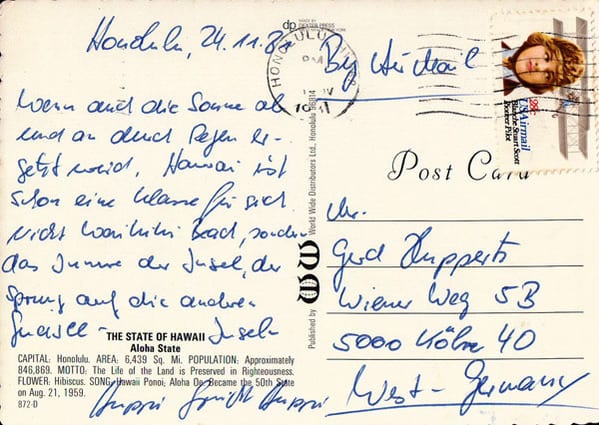 dp
MADE BY
DEXTER PRESS
Honolulu, 24.11.81
HONOLULU
PM
1981
By Air Mail
USAirmail
28c
Blanche Stuart Scott
Pioneer Pilot
Post Card
Wenn auch die Sonne ab
und an durch Regen er-
setzt wird, Hawaii ist
schon eine Klasse für sich.
Nicht Waikiki Beach, sondern
das Innere der Insel, der
Sprung auf die anderen
Inseln
Published by World Wide Distributors Ltd., Honolulu 96814
WW
Mr.
Gerd Huppertz
Wiener Weg 5B
5000 Köln 40
West-Germany
THE STATE OF HAWAII
Aloha State
CAPITAL: Honolulu. AREA: 6,439 Sq. Mi. POPULATION: Approximately
846,869. MOTTO: The Life of the Land is Preserved in Righteousness.
FLOWER: Hibiscus. SONG: Hawaii Ponoi; Aloha Oe Became the 50th State
on Aug. 21, 1959.
872-D